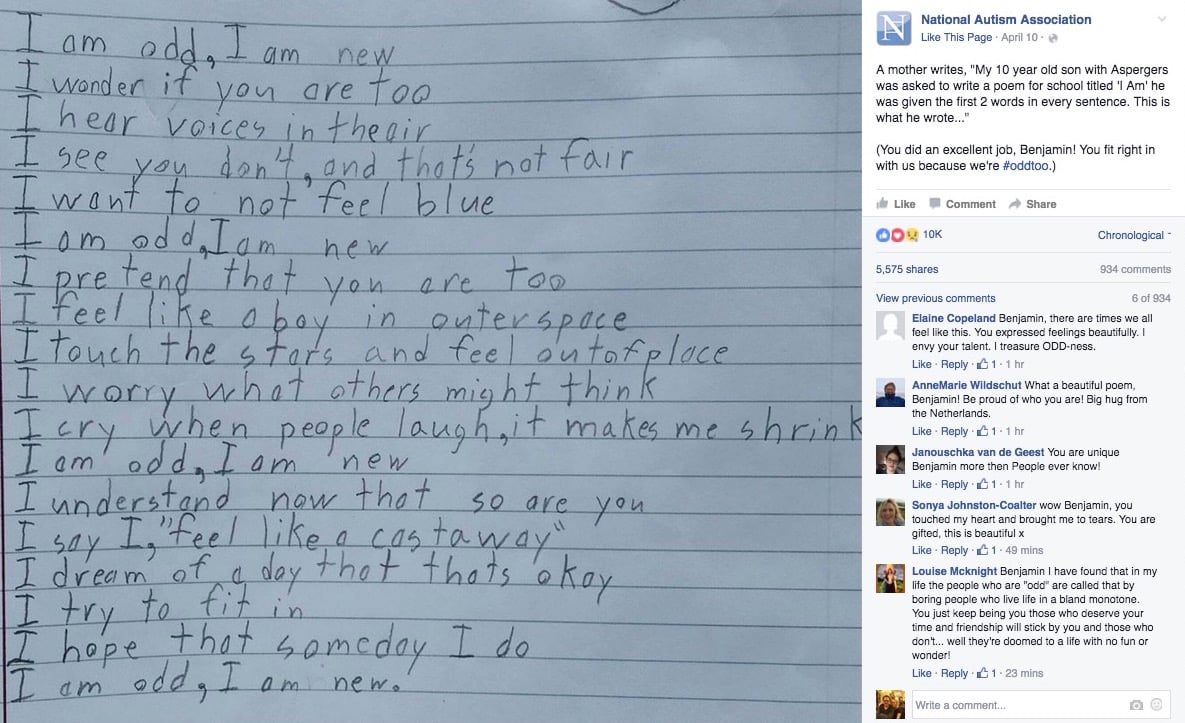 I am odd, I am new
I wonder if you are too
I hear voices in the air
I see you don't, and that's not fair
I want to not feel blue
I am odd, I am new
I pretend that you are too
I feel like a boy in outerspace
I touch the stars and feel out of place
I worry what others might think
I cry when people laugh, it makes me shrink
I am odd, I am new
I understand now that so are you
I say I, "feel like a castaway"
I dream of a day that thats okay
I try to fit in
I hope that someday I do
I am odd, I am new.
N
National Autism Association
Like This Page · April 10 ·
A mother writes, "My 10 year old son with Aspergers
was asked to write a poem for school titled 'I Am' he
was given the first 2 words in every sentence. This is
what he wrote..."
(You did an excellent job, Benjamin! You fit right in
with us because we're #oddtoo.)
Like Comment Share
10K Chronological
5,575 shares 934 comments
View previous comments 6 of 934
Elaine Copeland Benjamin, there are times we all
feel like this. You expressed feelings beautifully. I
envy your talent. I treasure ODD-ness.
Like · Reply · 1 · 1 hr
AnneMarie Wildschut What a beautiful poem,
Benjamin! Be proud of who you are! Big hug from
the Netherlands.
Like · Reply · 1 · 1 hr
Janouschka van de Geest You are unique
Benjamin more then People ever know!
Like · Reply · 1 · 1 hr
Sonya Johnston-Coalter wow Benjamin, you
touched my heart and brought me to tears. You are
gifted, this is beautiful x
Like · Reply · 1 · 49 mins
Louise Mcknight Benjamin I have found that in my
life the people who are "odd" are called that by
boring people who live life in a bland monotone.
You just keep being you those who deserve your
time and friendship will stick by you and those who
don't... well they're doomed to a life with no fun or
wonder!
Like · Reply · 1 · 23 mins
Write a comment...